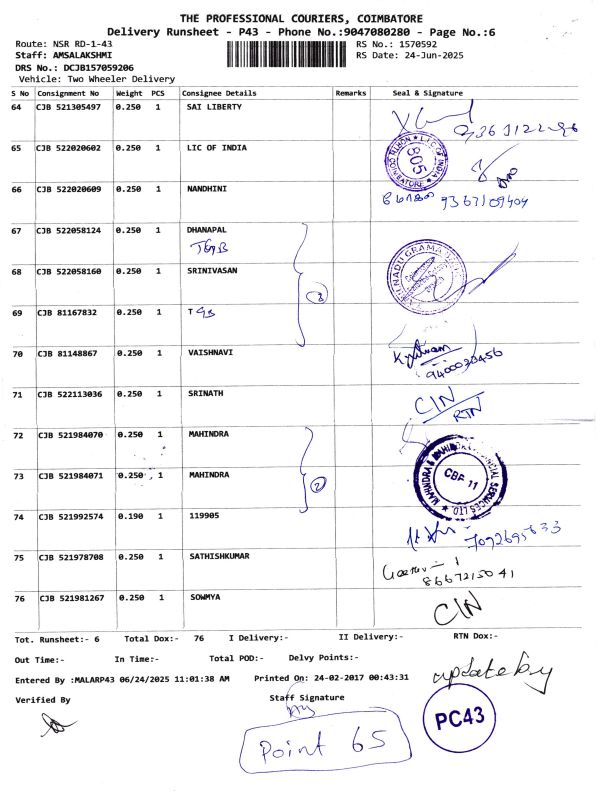 THE PROFESSIONAL COURIERS, COIMBATORE
Delivery Runsheet - P43 - Phone No.:9047080280 - Page No.:6
Route: NSR RD-1-43 RS No.: 1570592
Staff: AMSALAKSHMI RS Date: 24-Jun-2025
DRS No.: DCJB157059206
Vehicle: Two Wheeler Delivery
S No Consignment No Weight PCS Consignee Details Remarks Seal & Signature
64 CJB 521305497 0.250 1 SAI LIBERTY
65 CJB 522020602 0.250 1 LIC OF INDIA
805
66 CJB 522020609 0.250 1 NANDHINI
9367109404
67 CJB 522058124 0.250 1 DHANAPAL
TGB
68 CJB 522058160 0.250 1 SRINIVASAN
69 CJB 81167832 0.250 1 T GB
3
70 CJB 81148867 0.250 1 VAISHNAVI
9400030456
71 CJB 522113036 0.250 1 SRINATH
CIN
RTN
72 CJB 521984070 0.250 1 MAHINDRA
73 CJB 521984071 0.250 1 MAHINDRA
2
MAHINDRA & MAHINDRA FINANCIAL SERVICES LTD.
CBE 11
74 CJB 521992574 0.190 1 119905
75 CJB 521978708 0.250 1 SATHISHKUMAR
8667215041
76 CJB 521981267 0.250 1 SOWMYA
CIN
Tot. Runsheet:- 6 Total Dox:- 76 I Delivery:- II Delivery:- RTN Dox:-
Out Time:- In Time:- Total POD:- Delvy Points:-
Entered By :MALARP43 06/24/2025 11:01:38 AM Printed On: 24-02-2017 00:43:31
update by
Verified By Staff Signature
PC43
Point 65